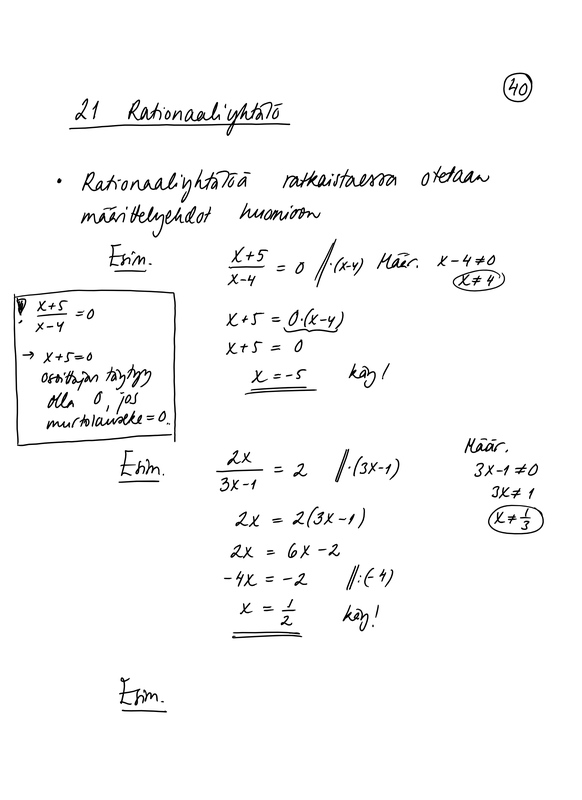 40
21 Rationaaliyhtälö
• Rationaaliyhtälöä ratkaistaessa otetaan
määrittelyehdot huomioon
Esim. x+5/x-4 = 0 ‖·(x-4) Määr. x-4≠0
x≠4
x+5 = 0·(x-4)
x+5 = 0
x = -5 käy!
! x+5/x-4 = 0
→ x+5=0
osoittajan täytyy
olla 0, jos
murtolauseke = 0..
Esim. 2x/3x-1 = 2 ‖·(3x-1)
Määr.
3x-1≠0
3x≠1
x≠1/3
2x = 2(3x-1)
2x = 6x-2
-4x = -2 ‖:(-4)
x = 1/2 käy!
Esim.